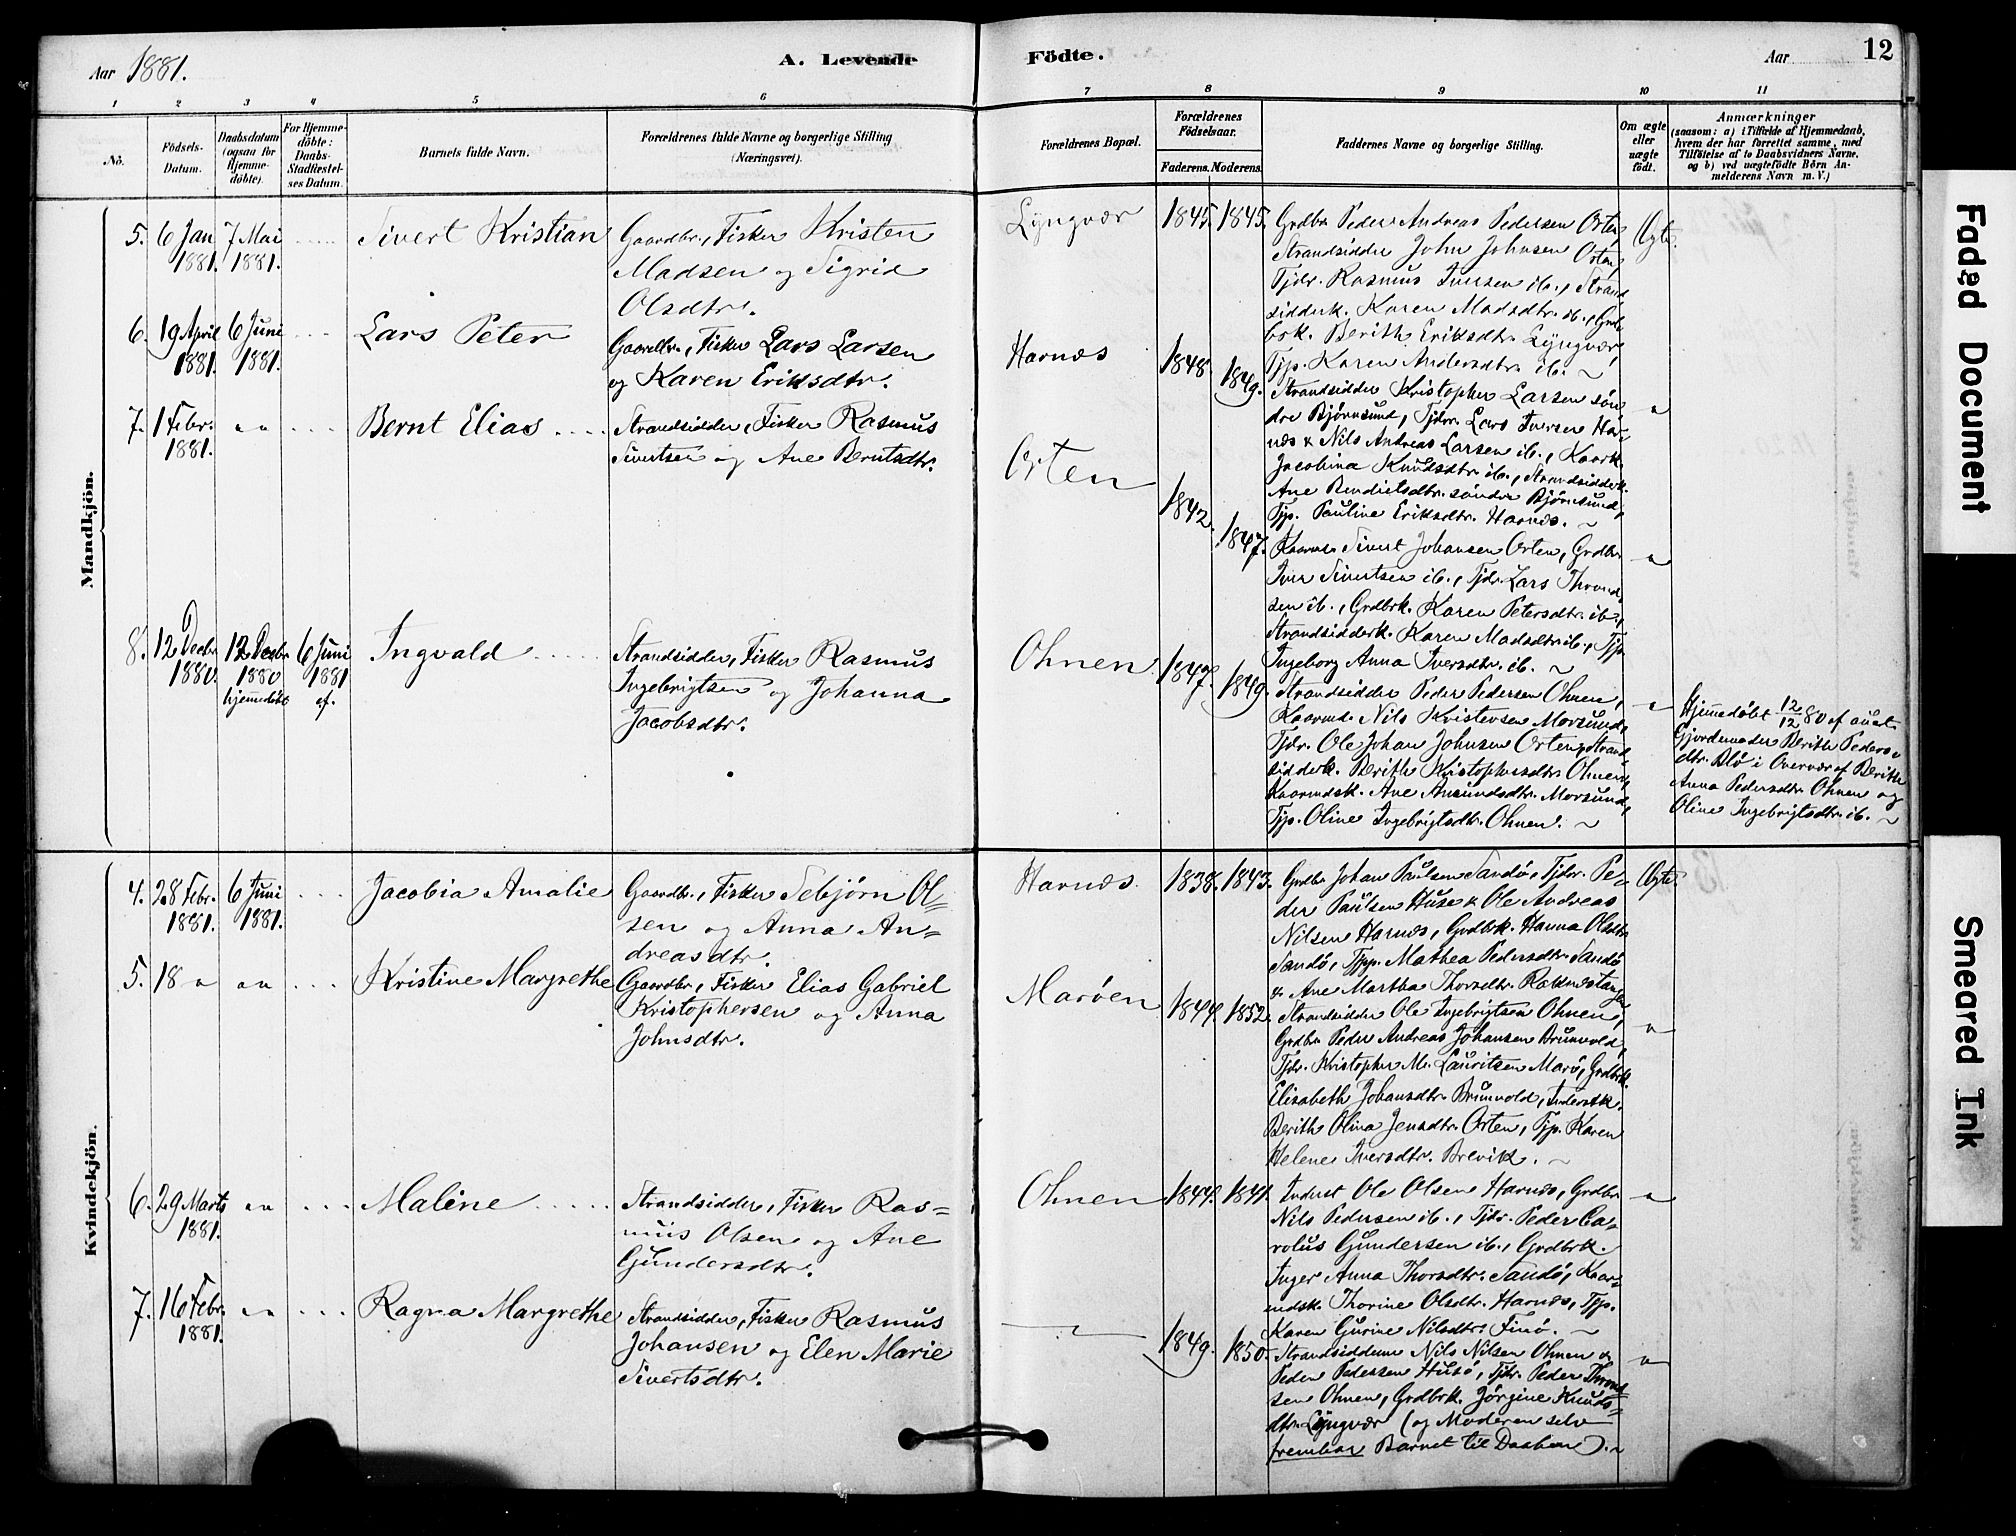 Aar 1881.
A. Levende
Födte.
Aar
12
1 2 3 4 5 6 7 8 9 10 11
No.
Födsels-
Datum.
Daabsdatum
(ogsaa for
Hjemme-
döbte).
For Hjemme-
döbte:
Daabs-
Stadfæstel-
ses Datum.
Barnets fulde Navn.
Forældrenes fulde Navne og borgerlige Stilling
(Næringsvei).
Forældrenes Bopæl.
Forældrenes
Födselsaar.
Faderens. Moderens.
Faddernes Navne og borgerlige Stilling.
Om ægte
eller
uægte
født.
Anmærkninger
(saasom: a) i Tilfælde af Hjemmedaab,
hvem der har forrettet samme, med
Tilføielse af to Daabsvidners Navne,
og b) ved uægtefödte Börn An-
melderens Navn m. V.)
Mandkjön.
5. 6 Jan 1881. 7 Mai 1881.
Sivert Kristian
Gaardbr., Fisker Kristen
Madsen og Sigrid
Olsdtr.
Lyngvær
1845. 1845.
Grdbr. Peder Andreas Pedersen Orten,
Strandsidder John Johnsen Orten,
Tjdr. Rasmus Iversen ib., Strand
sidderk. Karen Madsdtr. ib., Grd
brk. Berith Eriksdtr. Lyngvær,
Tjp. Karen Andersdtr. ib. ~
Ægte.
6. 19 April 1881. 6 Juni 1881.
Lars Peter
Gaardbr., Fisker Lars Larsen
og Karen Eriksdtr.
Harnæs
1848. 1849.
Strandsidder Kristopher Larsen søn
dre Bjørnsund, Tjdr. Lars Iversen Har
næs & Nils Andreas Larsen ib., Kaark.
Jacobina Knudsdtr. ib., Strandsidderk.
Ane Bendictsdtr. søndre Bjørnsund,
Tjp. Pauline Eriksdtr. Harnæs. ~
7. 1 Febr. 1881.
Bernt Elias
Strandsidder, Fisker Rasmus
Sivertsen og Ane Berntsdtr.
Orten
1842. 1847.
Kaarmd. Sivert Johansen Orten, Grdbr.
Iver Sivertsen ib., Tjdr. Lars Thrond
sen ib., Grdbrk. Karen Petersdtr. ib.,
Strandsidderk. Karen Madsdtr. ib., Tjp.
Ingeborg Anna Iversdtr. ib. ~
8. 12 Decbr 1880. 12 Decbr 1880 hjemmedøbt 6 Juni 1881 cf.
Ingvald
Strandsidder, Fisker Rasmus
Ingebrigtsen og Johanna
Jacobsdtr.
Ohnen
1847. 1849.
Strandsidder Peder Pedersen Ohnen,
Kaarmd. Nils Kristensen Morsund,
Tjdr. Ole Johan Johnsen Orten, Strand
sidderk. Berith Kristophersdtr. Ohnen,
Kaarmdsk. Ane Amundsdtr. Morsund,
Tjp. Oline Ingebrigtsdtr. Ohnen. ~
Hjemmedøbt 12/12 80 af ansat
Gjordemoder Berith Peders-
dtr. Blø i Overvær af Berith
Anna Pedersdtr. Ohnen og
Oline Ingebrigtsdtr. ib. ~
Kvindekjön.
4. 28 Febr. 1881. 6 Juni 1881.
Jacobia Amalie
Gaardbr., Fisker Sebjørn Ol=
sen og Anna An=
dreasdtr.
Harnæs.
1838. 1843.
Grdbr. Johan Paulsen Sandø, Tjdr. Pe-
der Paulsen Huse & Ole Andreas
Nilsen Harnæs, Grdbrk. Hanna Olsdtr.
Sandø, Tjp. Mathea Pedersdtr. Sandø
& Ane Martha Thorsdtr. Raknestangen
Ægte.
5. 18
Kristine Margrethe
Gaardbr., Fisker Elias Gabriel
Kristophersen og Anna
Johnsdtr.
Marøen
1844. 1852.
Strandsidder Ole Ingebrigtsen Ohnen,
Grdbr. Peder Andreas Johansen Brunvold,
Tjdr. Kristopher M. Lauritsen Marø, Grdbrk.
Elisabeth Johansdtr. Brunvold, Inderstk.
Berith Olina Jensdtr. Orten, Tjp. Karen
Helene Iversdtr. Brevik. ~
6. 29 Marts 1881.
Maline
Strandsidder, Fisker Ras=
mus Olsen og Ane
Gundersdtr.
Ohnen
1844. 1841.
Inderst Ole Olsen Harnæs, Grdbr.
Nils Pedersen ib., Tjdr. Peder Ca-
rolus Gundersen ib., Grdbrk.
Inger Anna Thorsdtr. Sandø, Kaar-
mdsk. Thorine Olsdtr. Harnæs, Tjp.
Karen Gurine Nilsdtr. Finø. ~
7. 16 Febr. 1881.
Ragna Margrethe
Strandsidder, Fisker Rasmus
Johansen og Elen Marie
Sivertsdtr.
1849. 1850.
Strandsidderne Nils Nilsen Ohnen &
Peder Pedersen Husø, Tjdr. Peder Thrond
sen Ohnen, Grdbrk. Jørgine Knuds=
dtr. Lyngvær (og Moderen selv
frembar Barnet til Daaben). ~
Faded Document
Smeared Ink